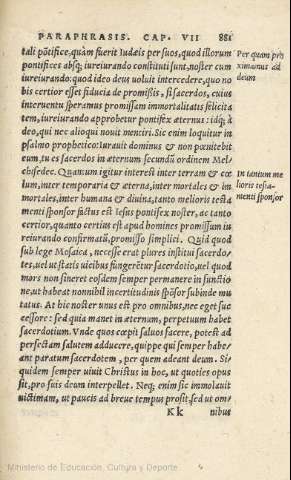 PARAPHRASIS. CAP. VII 881
tali põtifice, quàm fuerit Iudæis per suos, quod illorum
Per quam pro
pontifices absq; iureiurando constituti sunt, noster cum
ximamus ad
iureiurando: quod ideo deus uoluit intercedere, quo no
deum
bis certior esset fiducia de promissis, si sacerdos, cuius
interuentu speramus promissam immortalitatis felicita
tem, iureiurando approbetur pontifex æternus: idq; à
deo, qui nec alioqui nouit mentiri. Sic enim loquitur in
psalmo prophetico: Iurauit dominus & non pœnitebit
eum, tu es sacerdos in æternum secundũ ordinem Mel
chisedec. Quantum igitur interest inter terram & cœ
In tantum me
lum, inter temporaria & æterna, inter mortales & im
lioris testa
mortales, inter humana & diuina, tanto melioris testa
menti sponsor
menti sponsor factus est Iesus pontifex noster, ac tanto
certior, quanto certius est apud homines promissum iu
reiurando confirmatũ, promisso simplici. Quid quod
sub lege Mosaica, necesse erat plures institui sacerdo-
tes, uel ut statis uicibus fungerẽtur sacerdotio, uel quod
mors non sineret eosdem semper permanere in functio
ne, ut haberat nonnihil incertitudinis spõsor subinde mu
tatus. At hic noster unus est pro omnibus, nec eget suc
cessore: sed quia manet in æternum, perpetuum habet
sacerdotium. Vnde quos cœpit saluos facere, potest ad
perfectam salutem adducere, quippe qui semper habe/
ant paratum sacerdotem, per quem adeant deum. Si/
quidem semper uiuit Christus in hoc, ut quoties opus
sit, pro suis deum interpellet. Neq; enim sic immolauit
uictimam, ut paucis ad breue tempus prosit, sed ut om/
Kk nibus
Ministerio de Educación, Cultura y Deporte